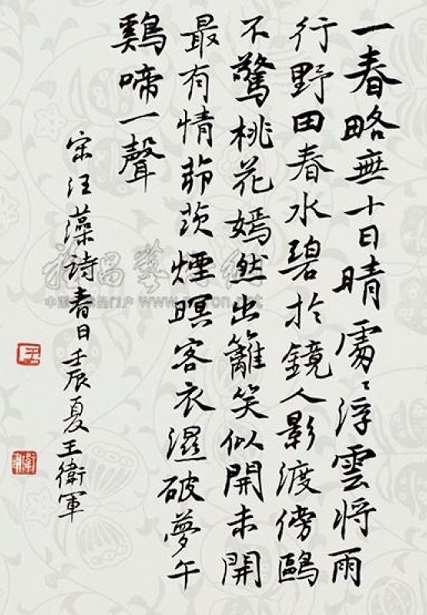 一春略無十日晴處〻浮雲將雨
行野田春水碧於鏡人影渡傍鷗
不驚桃花嫣然出籬笑似開未開
最有情茆茨煙暝客衣濕破夢午
鷄啼一聲
宋汪藻詩春日壬辰夏王衛軍